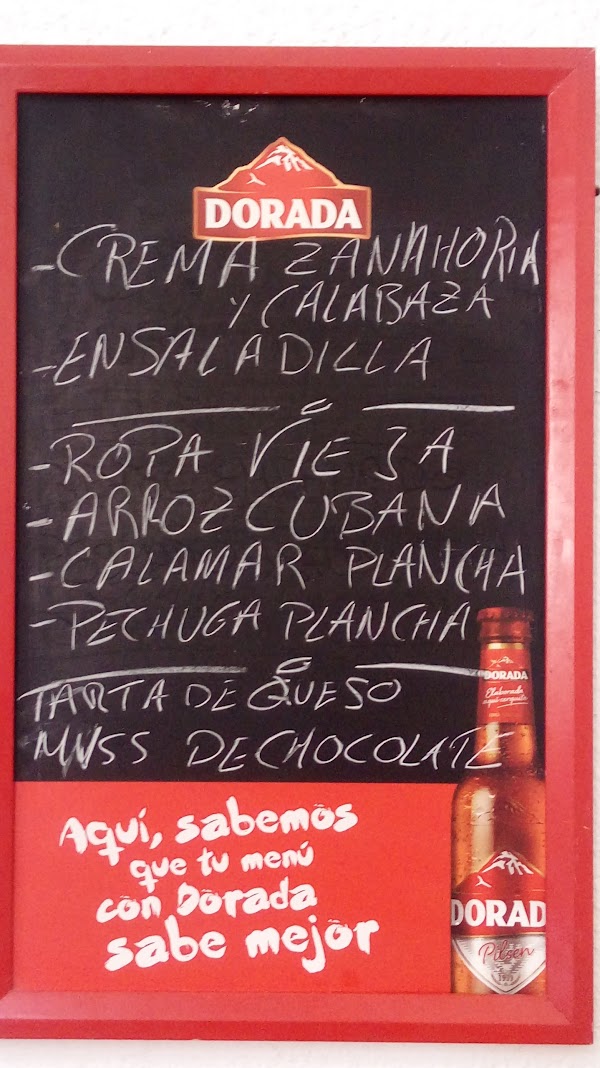 DORADA
-CREMA ZANAHORIA
Y CALABAZA
-ENSALADILLA
-ROPA VIEJA
-ARROZ CUBANA
-CALAMAR PLANCHA
-PECHUGA PLANCHA
TARTA DE QUESO
MUSS DE CHOCOLATE
DORADA
Elaborada
aquí conquista
Aquí, sabemos
que tu menú
con Dorada
sabe mejor
DORAD
Pilsen